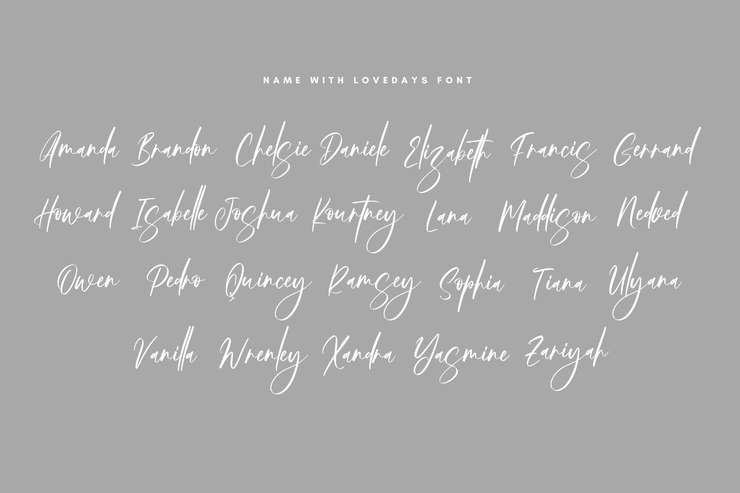 NAME WITH LOVEDAYS FONT
Amanda Brandon Chelsie Daniele Elizabeth Francis Gerrand
Howard Isabelle Joshua Kourtney Lana Maddison Nedved
Owen Pedro Quincey Ramsey Sophia Tiana Ulyana
Vanilla Wrenley Xandra Yasmine Zariyah